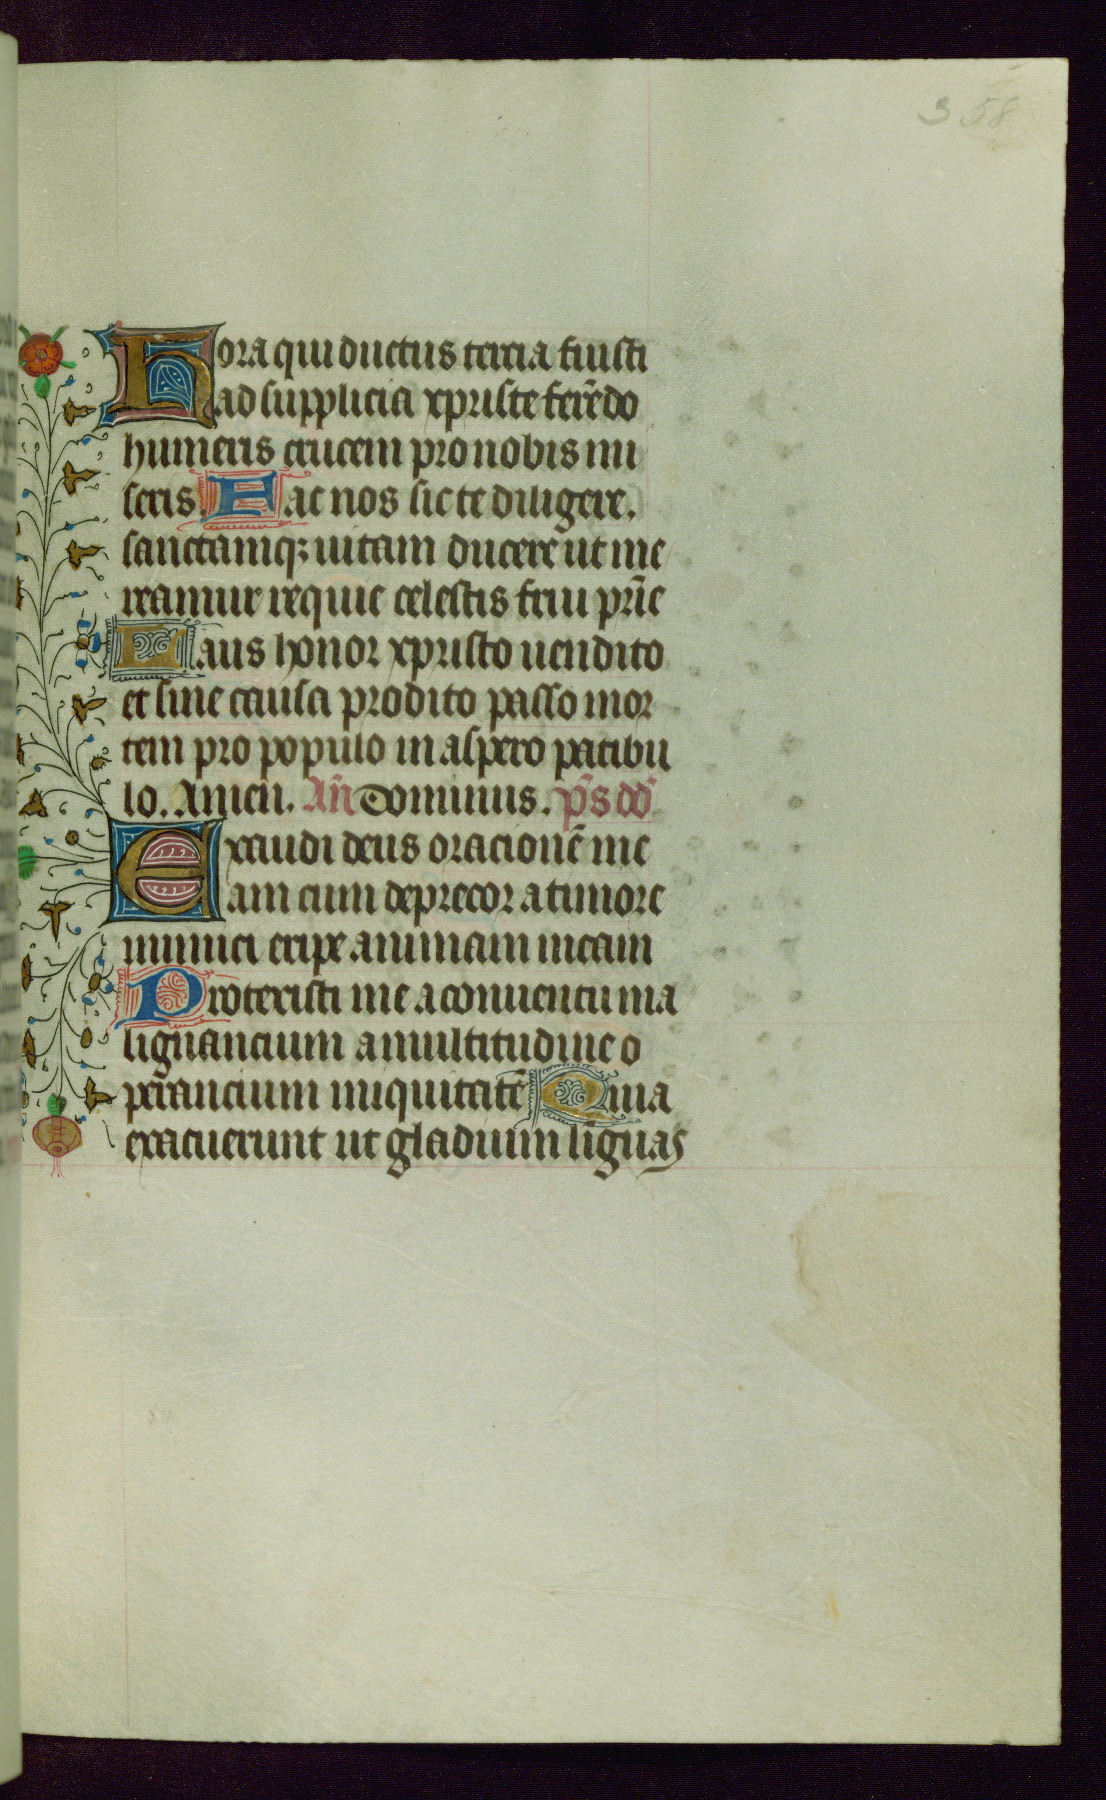 358
Hora qui ductus tercia fuisti
ad supplicia xpriste ferēdo
humeris crucem pro nobis mi
seris Fac nos sic te diligere.
sanctamq; uitam ducere ut me
reamur requie celestis frui pr̄ie
Laus honor xpristo uendito
et sine causa prodito passo mor
tem pro populo in aspero patibu
lo. Amen. An̄ Dominus. p̄s dd̄
Exaudi deus oracionē me
am cum deprecor a timore
inimici eripe animam meam
Protexisti me a conuentu ma
lignancium a multitudine o
perancium iniquitatē Quia
exacuerunt ut gladium linguas